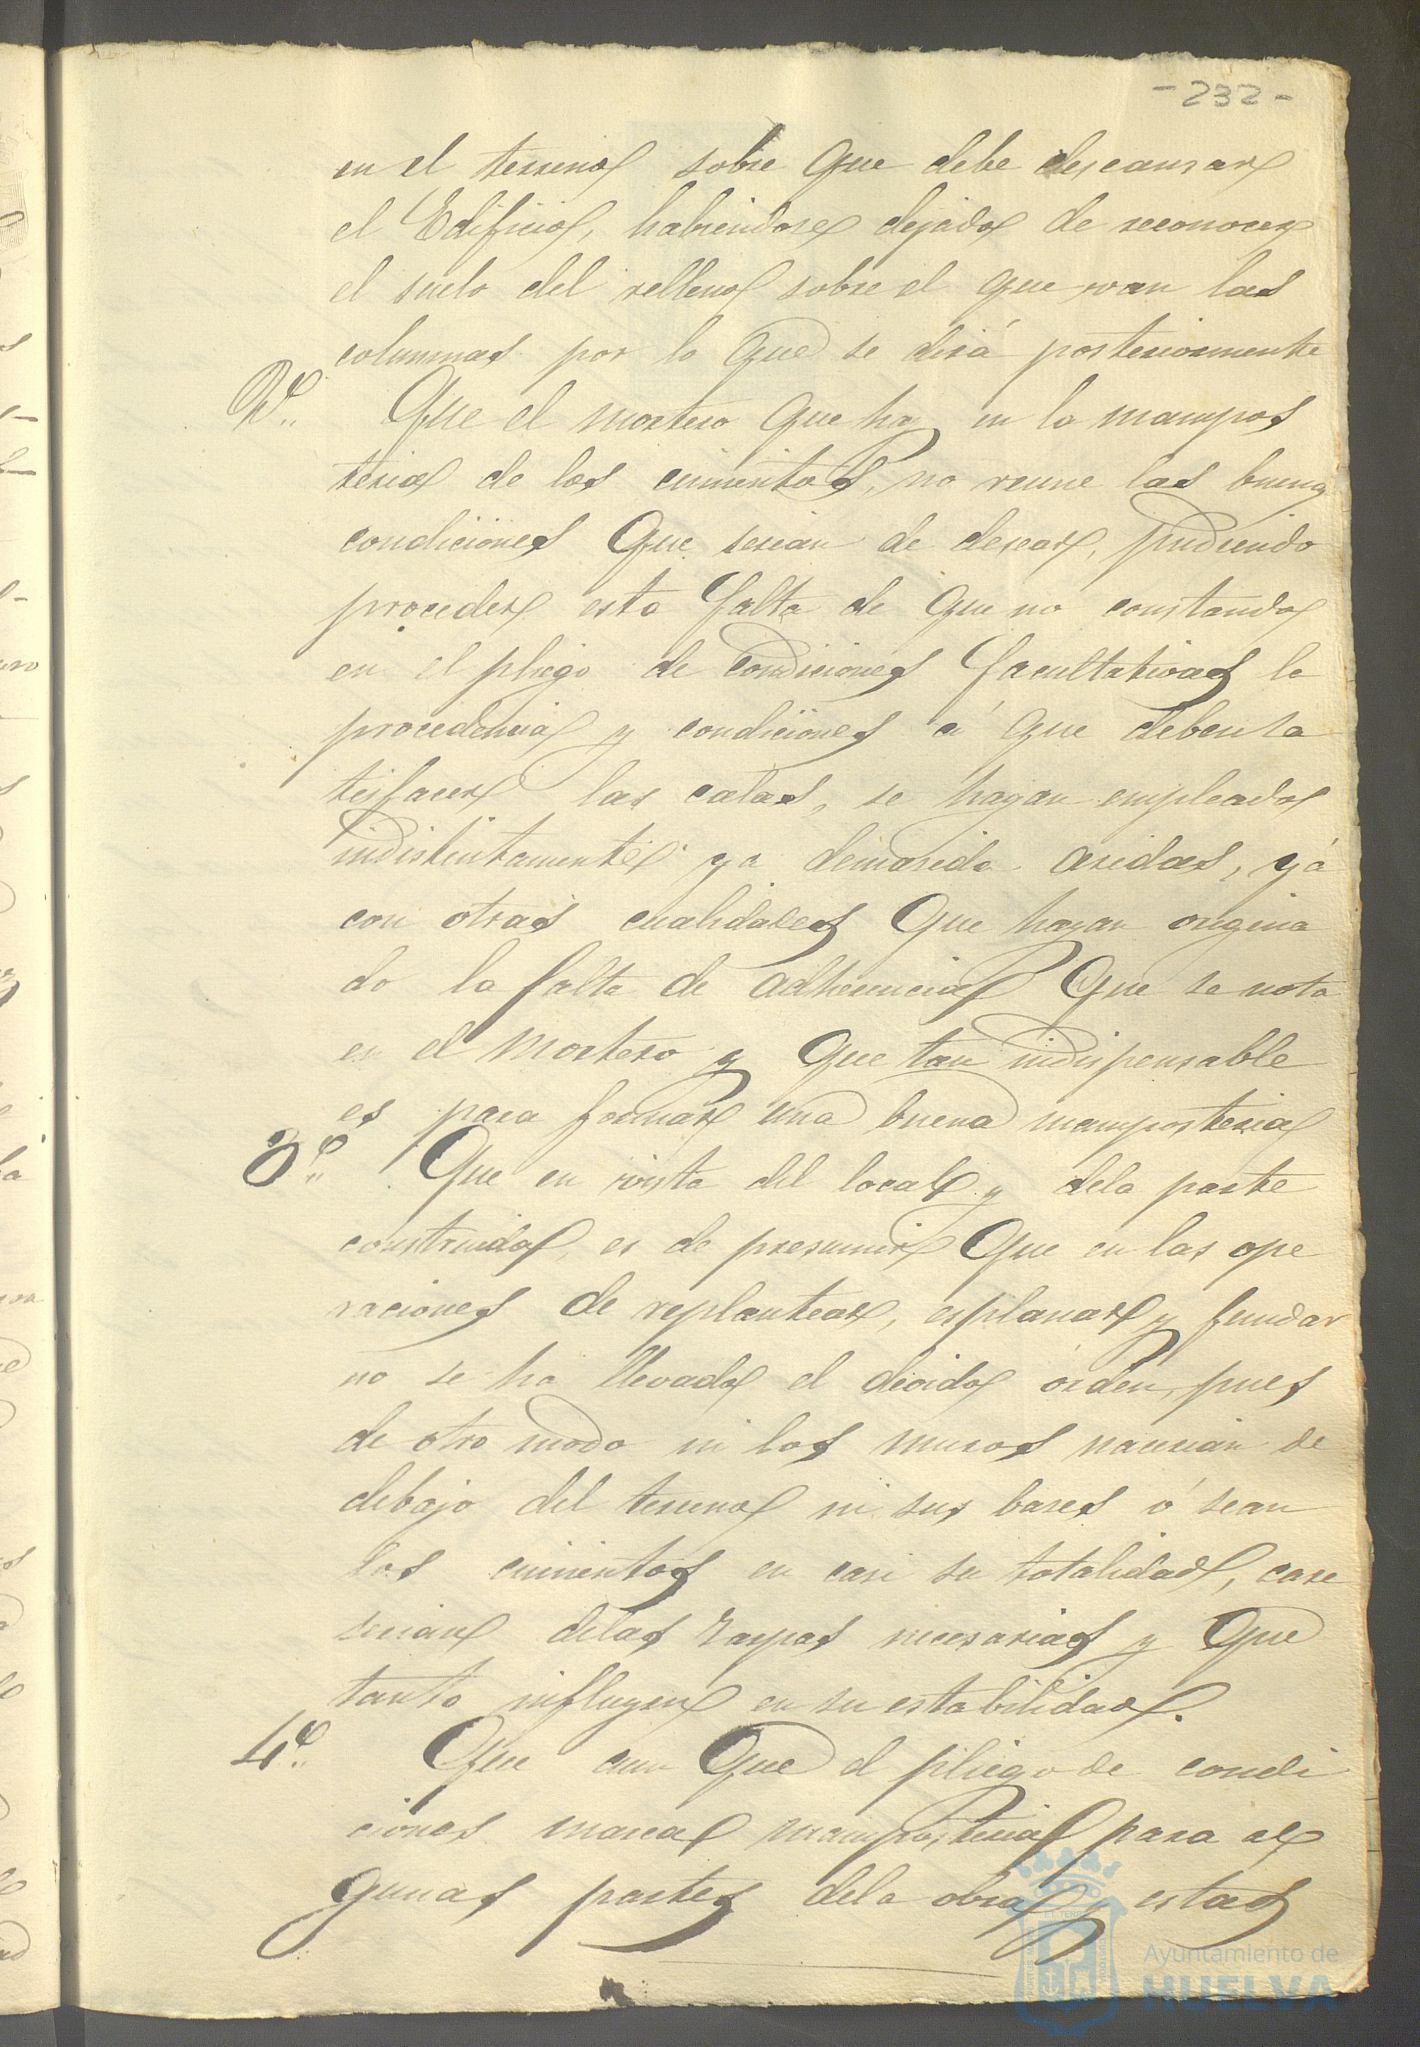 -232-
en el terreno sobre que debe descansar
el Edificio, habiendose dejado de reconocer
el suelo del relleno sobre el que van las
columnas por lo que se dirá posteriormente
2º.. Que el mortero que hay en la mampos
teria de los cimientos, no reune las buenas
condiciones que serian de desear, pudiendo
proceder esta falta de que no constando
en el pliego de condiciones facultativas la
procedencia y condiciones á que deben sa
tisfacer las calas, se hayan empleados
indistintamente ya demasido aridas, yá
con otras cualidades que hayan origina
do la falta de adherencia que se nota
en el mortero y que tan indispensable
es para formar una buena mamposteria
3º.. Que en vista del local y dela parte
construida, es de presumir que en las ope
raciones de replantear, esplanar y fundar
no se ha llevado el devido órden, pues
de otro modo ni los muros nacerian de
debajo del terreno ni sus bases ó sean
los cimientos en casi su totalidad, care
cerian delas zarpas necesarias y que
tanto influyen en su estabilidad.
4º.. Que aun que el pliego de condi
ciones marca mamposteria para al
gunas partes dela obra y estas
Ayuntamiento de
HUELVA